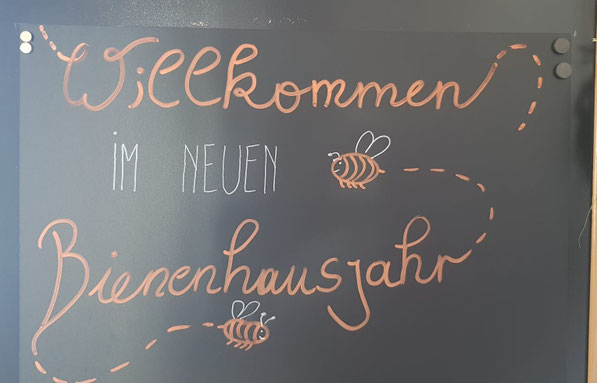 Willkommen
im NEUEN
Bienenhausjahr